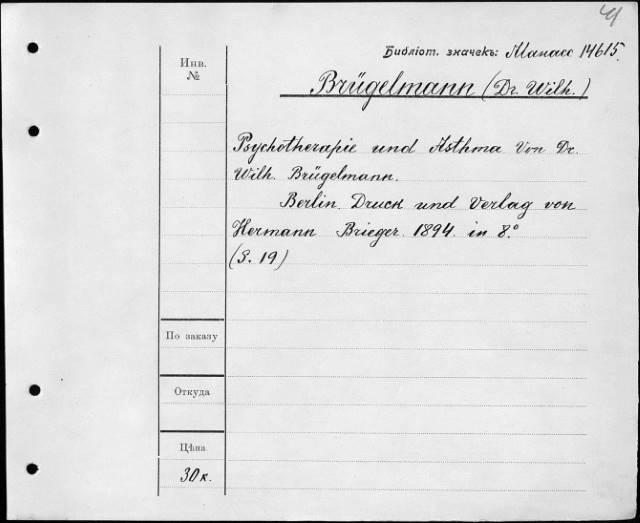 41
Библіот. значекъ: Манасс 14615.
Инв.
№
Brügelmann (Dr. Wilh.)
Psychotherapie und Asthma Von Dr.
Wilh. Brügelmann.
Berlin. Druck und Verlag von
Hermann Brieger. 1894. in 8.°
(S. 19)
По заказу
Откуда
Цѣна
30 к.